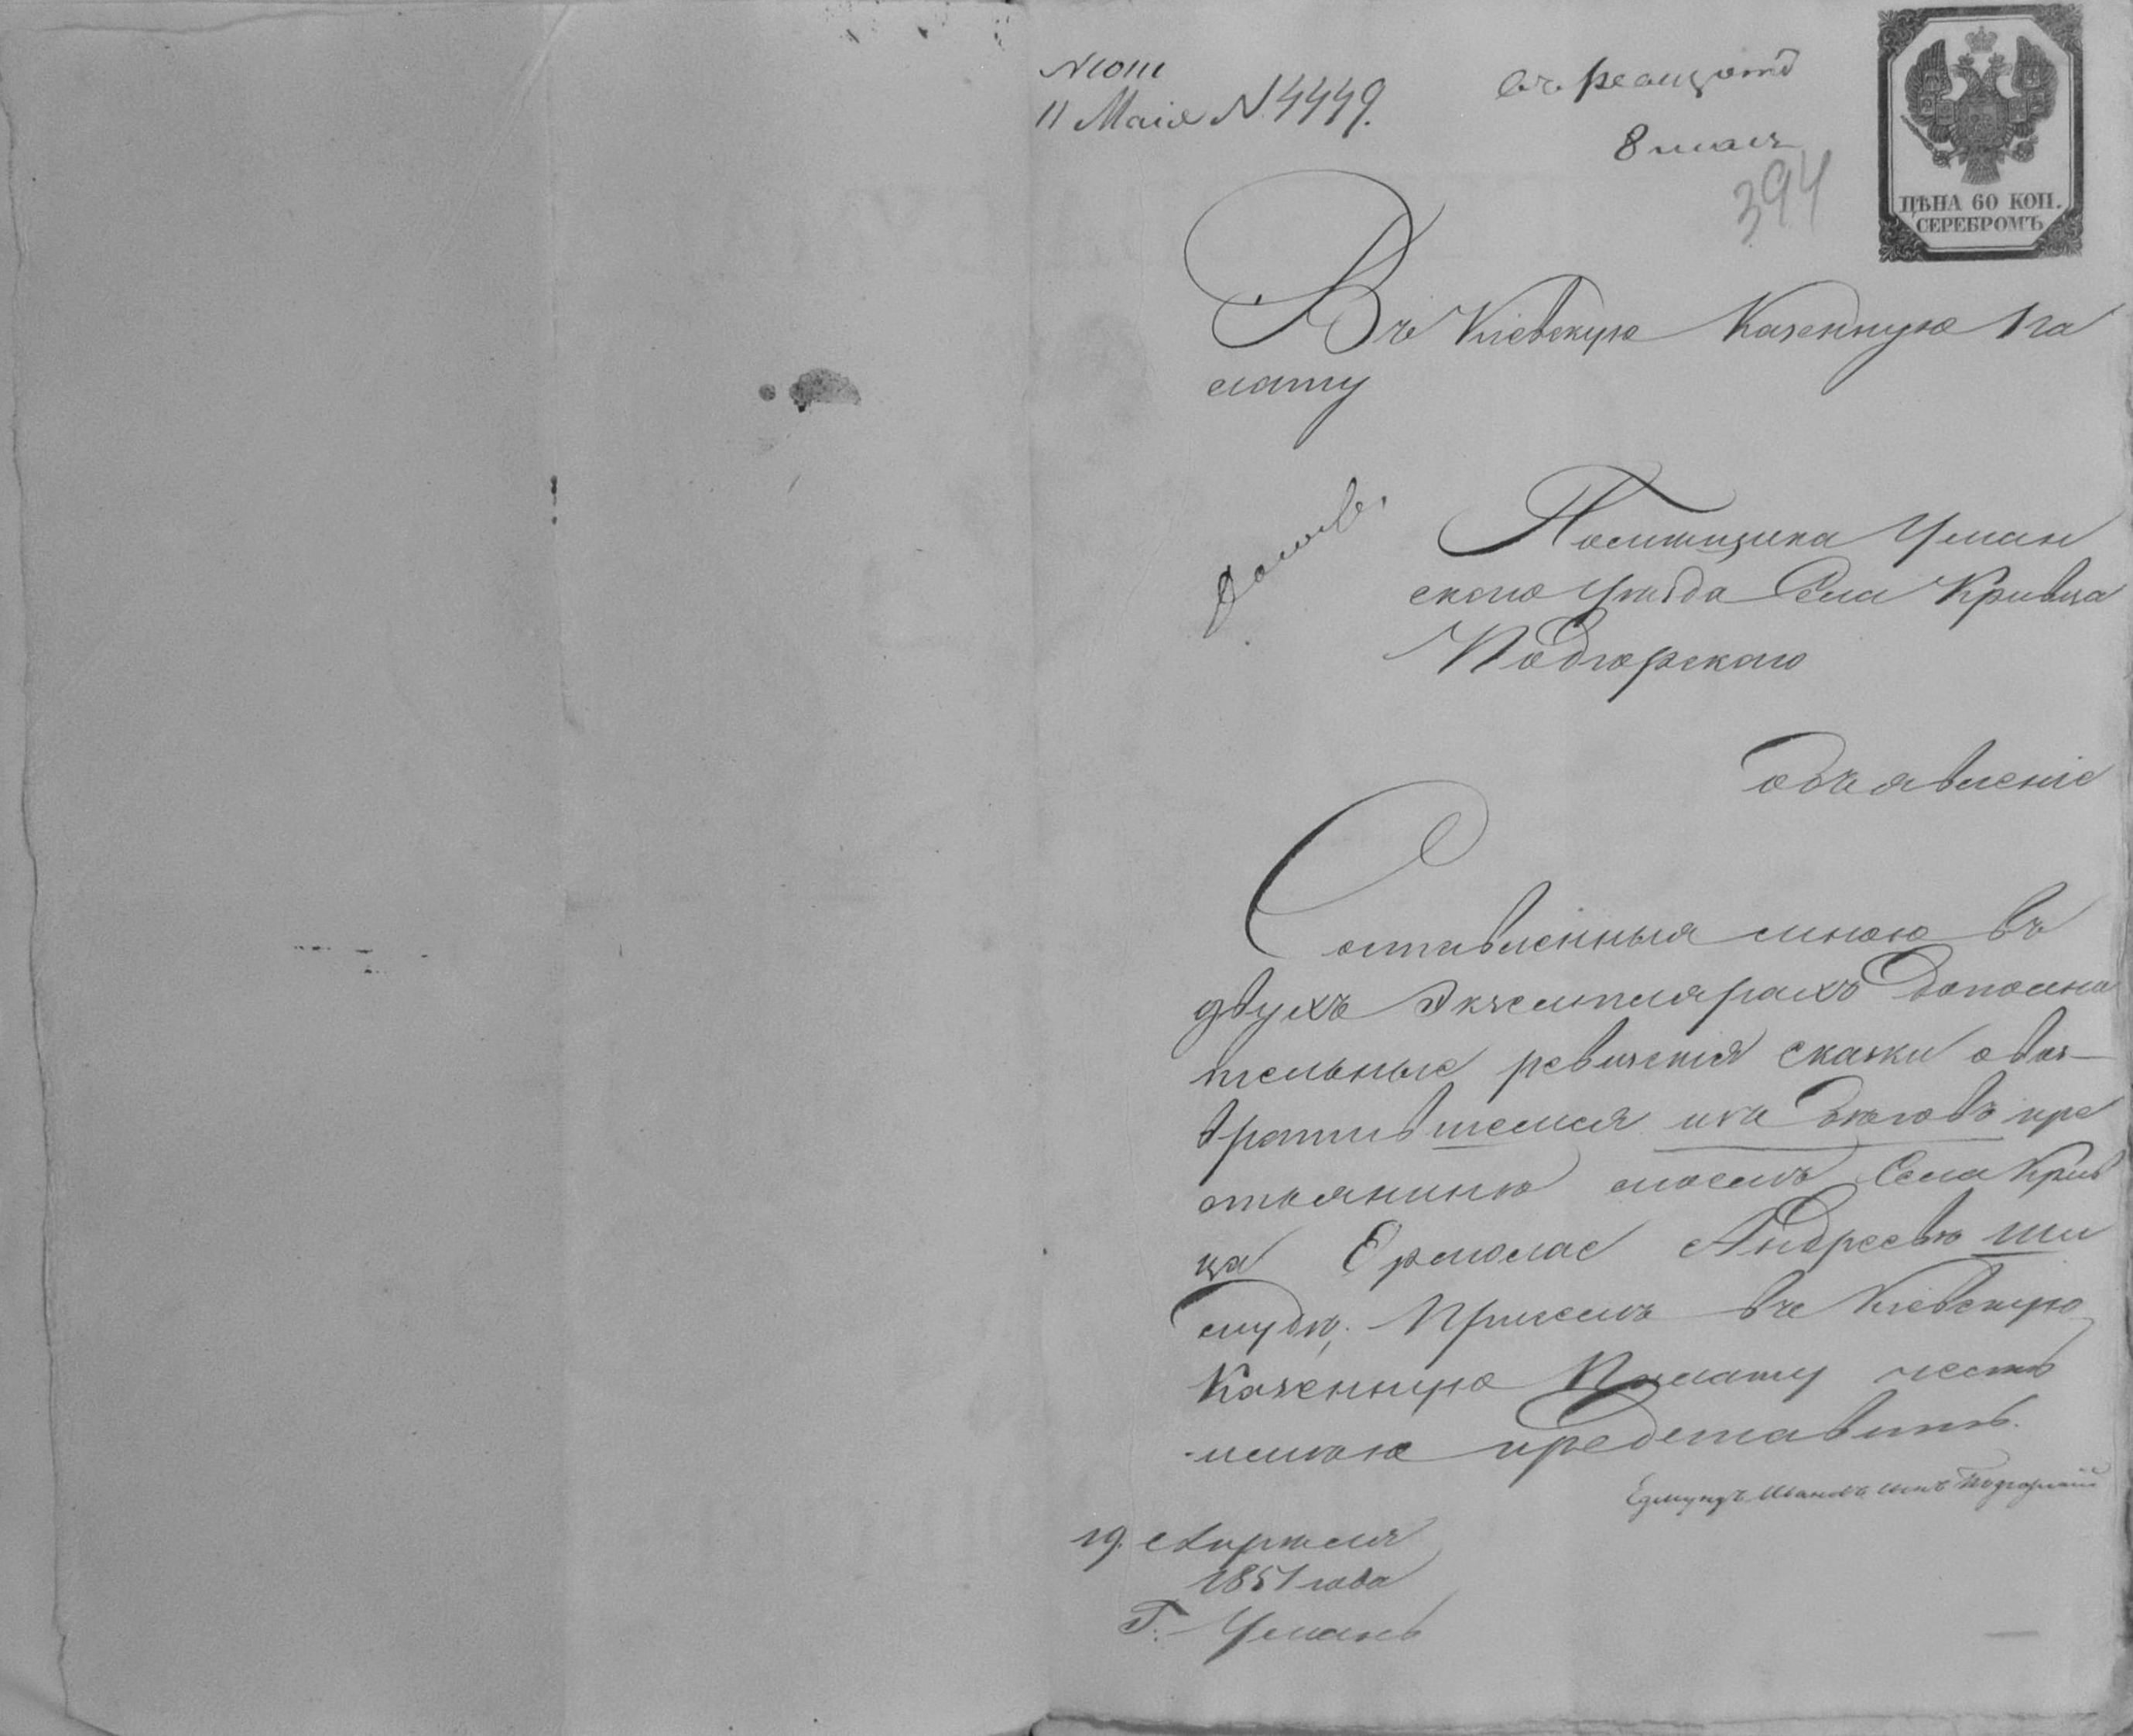 11 Маія N 4449.
8 мая
394
ЦѢНА 60 КОП.
СЕРЕБРОМЪ
Въ Кіевскую Казенную Па
лату
Помѣщика Уман
скаго Уѣзда Села Кривца
Подгорскаго
объявленіе
Составленныя мною въ
двухъ экземплярахъ дополни
тельные ревизскія сказки о воз-
вратившемся изъ бѣговъ кре
стьянинѣ моемъ Села Крив
ца Ермолае Андреевѣ
Причемъ въ Кіевскую
Казенную Палату честь
имѣю представить.
Едмундъ Подгорскій
19. Апрѣля
1851 года
Г. Умань